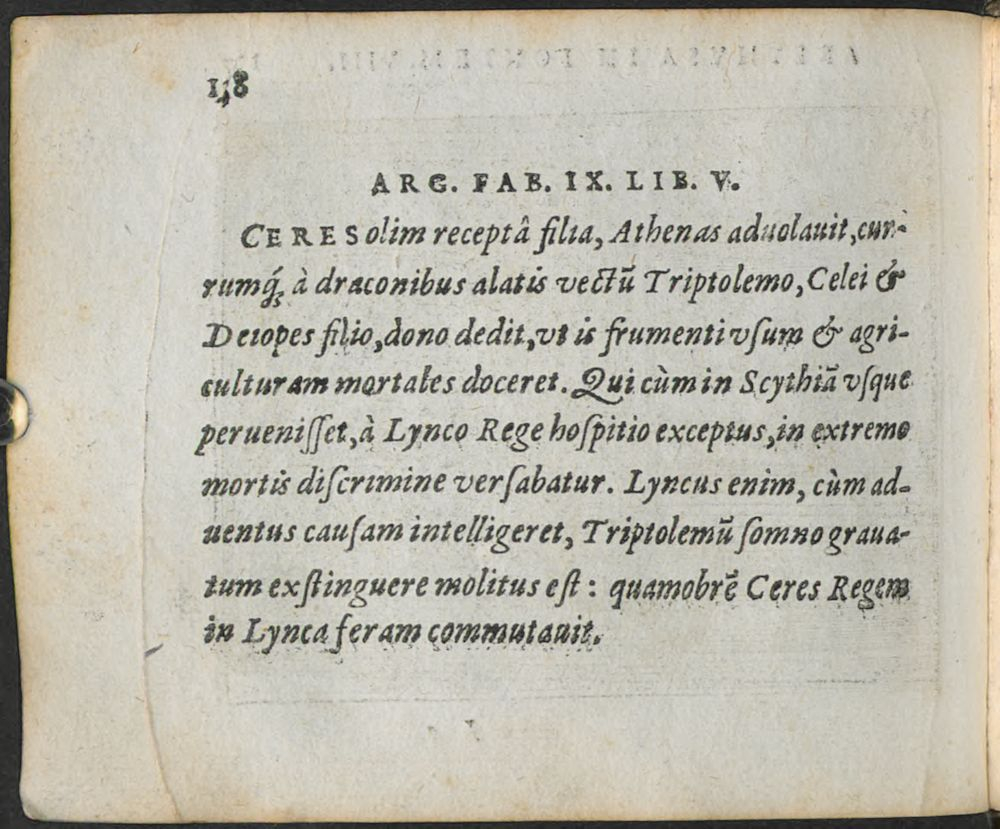 138
ARG. FAB. IX. LIB. V.
CERES olim receptâ filia, Athenas aduolauit, cur-
rumq́; à draconibus alatis vectũ Triptolemo, Celei &
Deiopes filio, dono dedit, vt is frumenti vſum & agri-
culturam mortales doceret. Qui cùm in Scythiã vſque
perueniſſet, à Lynco Rege hoſpitio exceptus, in extremo
mortis diſcrimine verſabatur. Lyncus enim, cùm ad-
uentus cauſam intelligeret, Triptolemũ ſomno graua-
tum exſtinguere molitus eſt: quamobrẽ Ceres Regem
in Lynca feram commutauit.